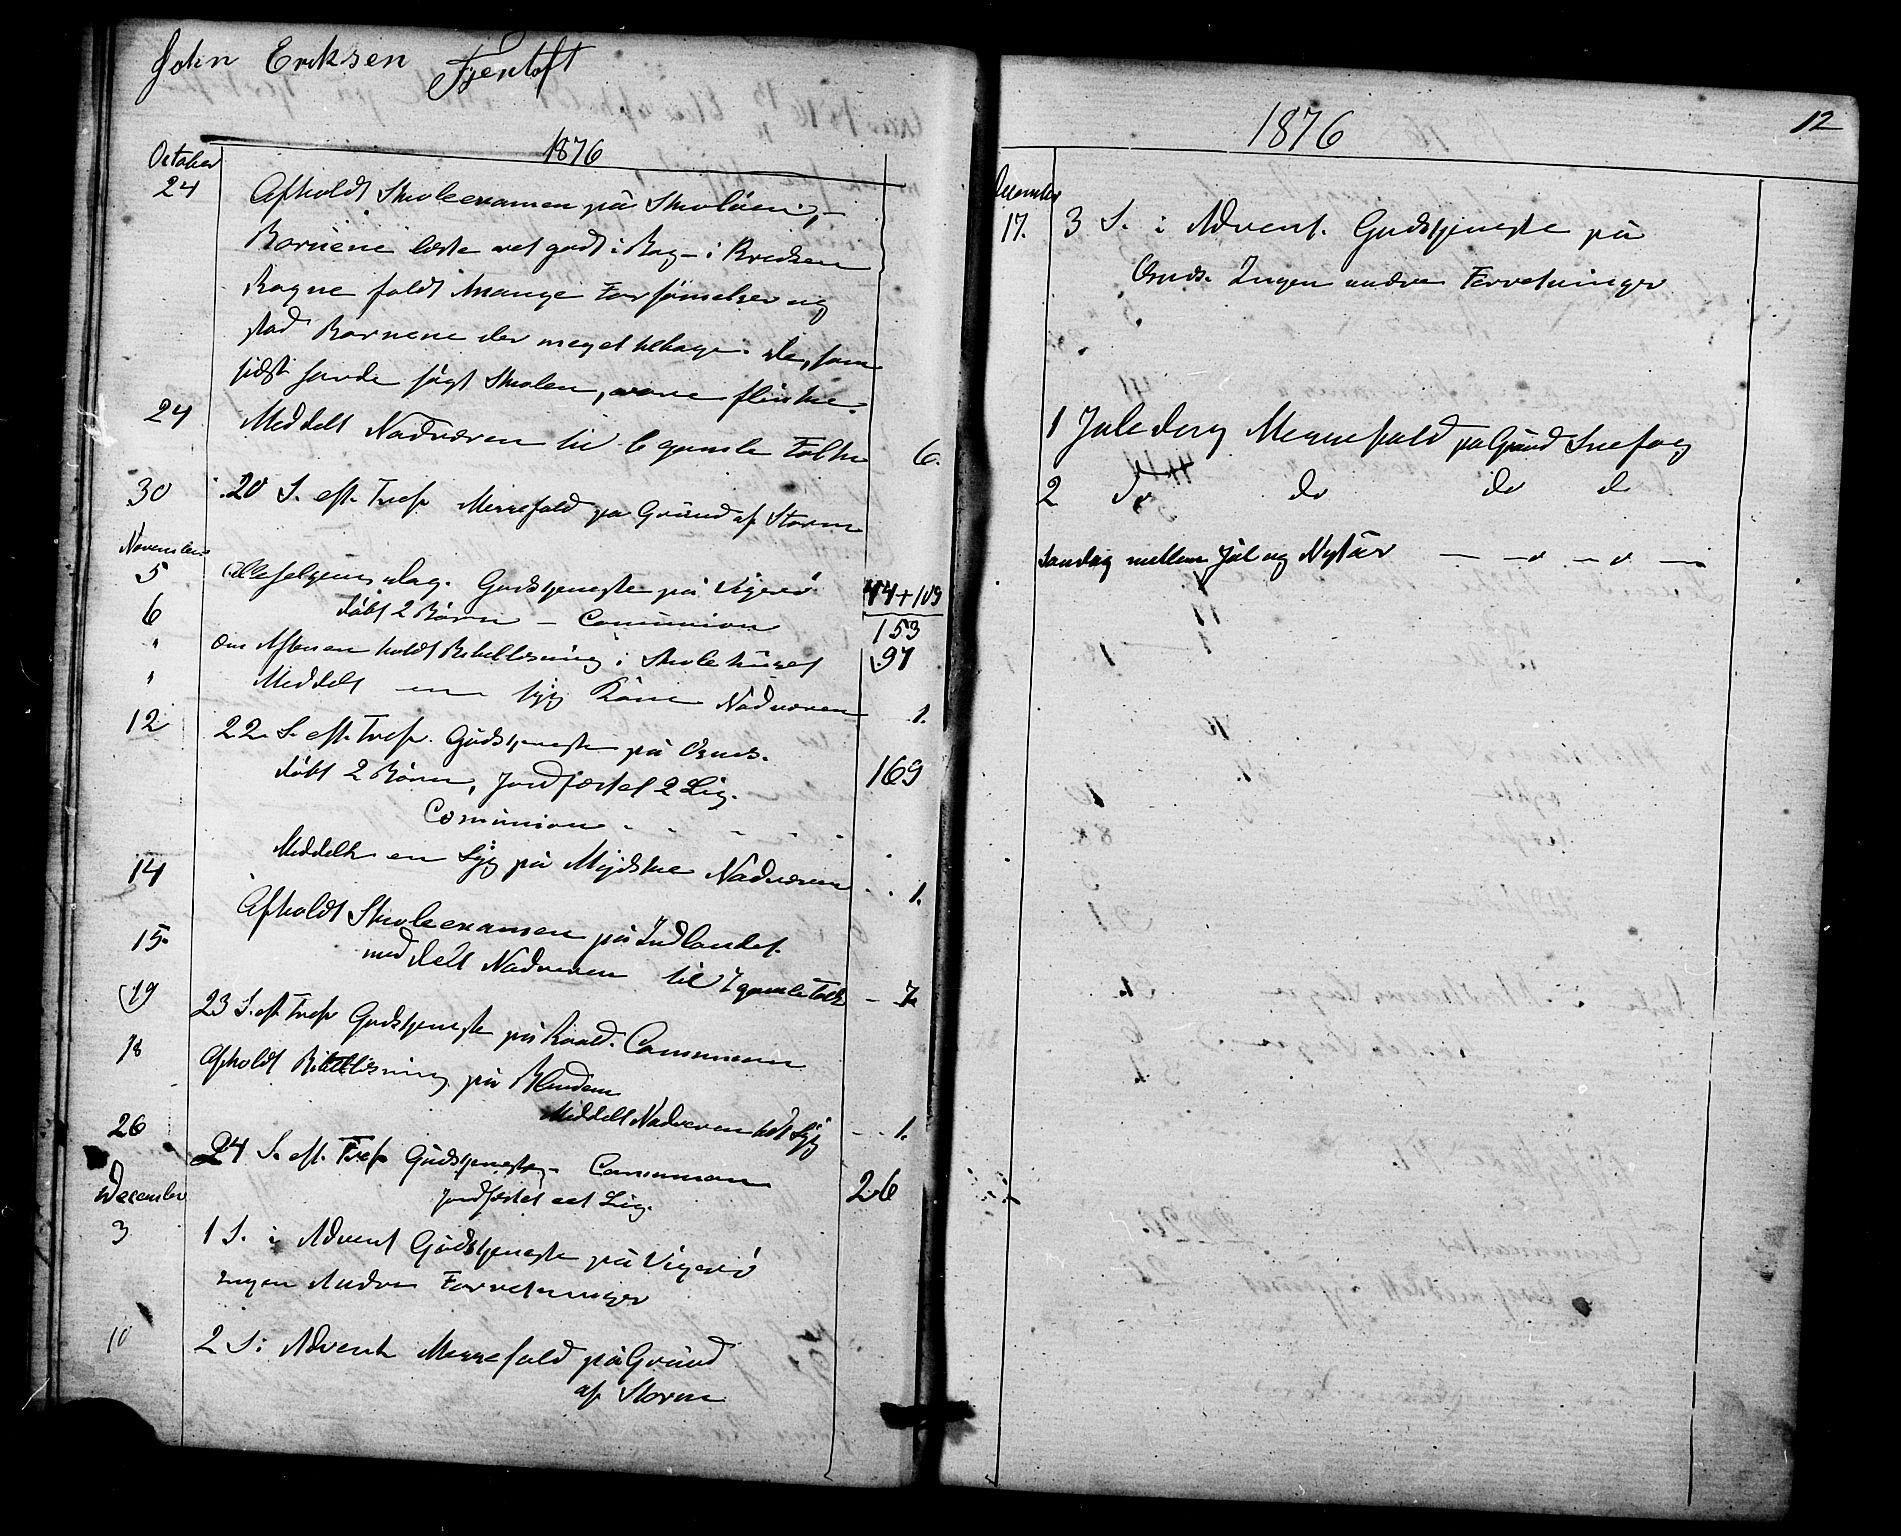 John Eriksen Fjentoft
1876
October
24 Afholdt Skoleexamen på Skuløen, –
Børnene læste ret godt i Bog – i Kredsen
Rogne faldt mange Forsømelser og
stod Børnene der meget tilbage. De, som
sidst havde søgt Skolen, vare flinke.
24 Meddelt Nadveren til 6 gamle Folk 6.
30 20 S. eft. Tref. Messefald på Grund af Storm
November
5 Allehelgensdag. Gudstjeneste på Vigerø 44+109
6 døbt 2 Børn – Comunion 153
" om Aftenen holdt Bibellæsning i Skolehuset 97
" Meddelt en syg Kone Nadveren 1.
12 22 S. eft. Tref. Gudstjeneste på Onøs.
døbt 2 Børn, Jordfæstet 2 Lig. 169
Comunion
14 Meddelt en Syg på Nadveren 1.
15 Afholdt Skoleexamen på Indlandet.
meddelt Nadveren til 7 gamle Folk – 7.
19 23 S. eft Tref Gudstjeneste på Roald. Comunion
18 Afholdt Bibellæsning på
Meddelt Nadveren Syg 1.
26 24 S. eft. Tref Gudstjeneste – Comunion
Jordfæstet eet Lig. 26
December
3 1 S. i Advent Gudstjeneste på Vigerø
ingen Andre Forretninger
10 2 S. i Advent Messefald på Grund
af Storm
12
1876
December
17. 3 S. i Advent. Gudstjeneste på
Onøs. Ingen andre Forretninger
1 Juledag Messefald på Grund Snefog
2 do do do d
Søndag mellem Jul og Nytår — –o –o —